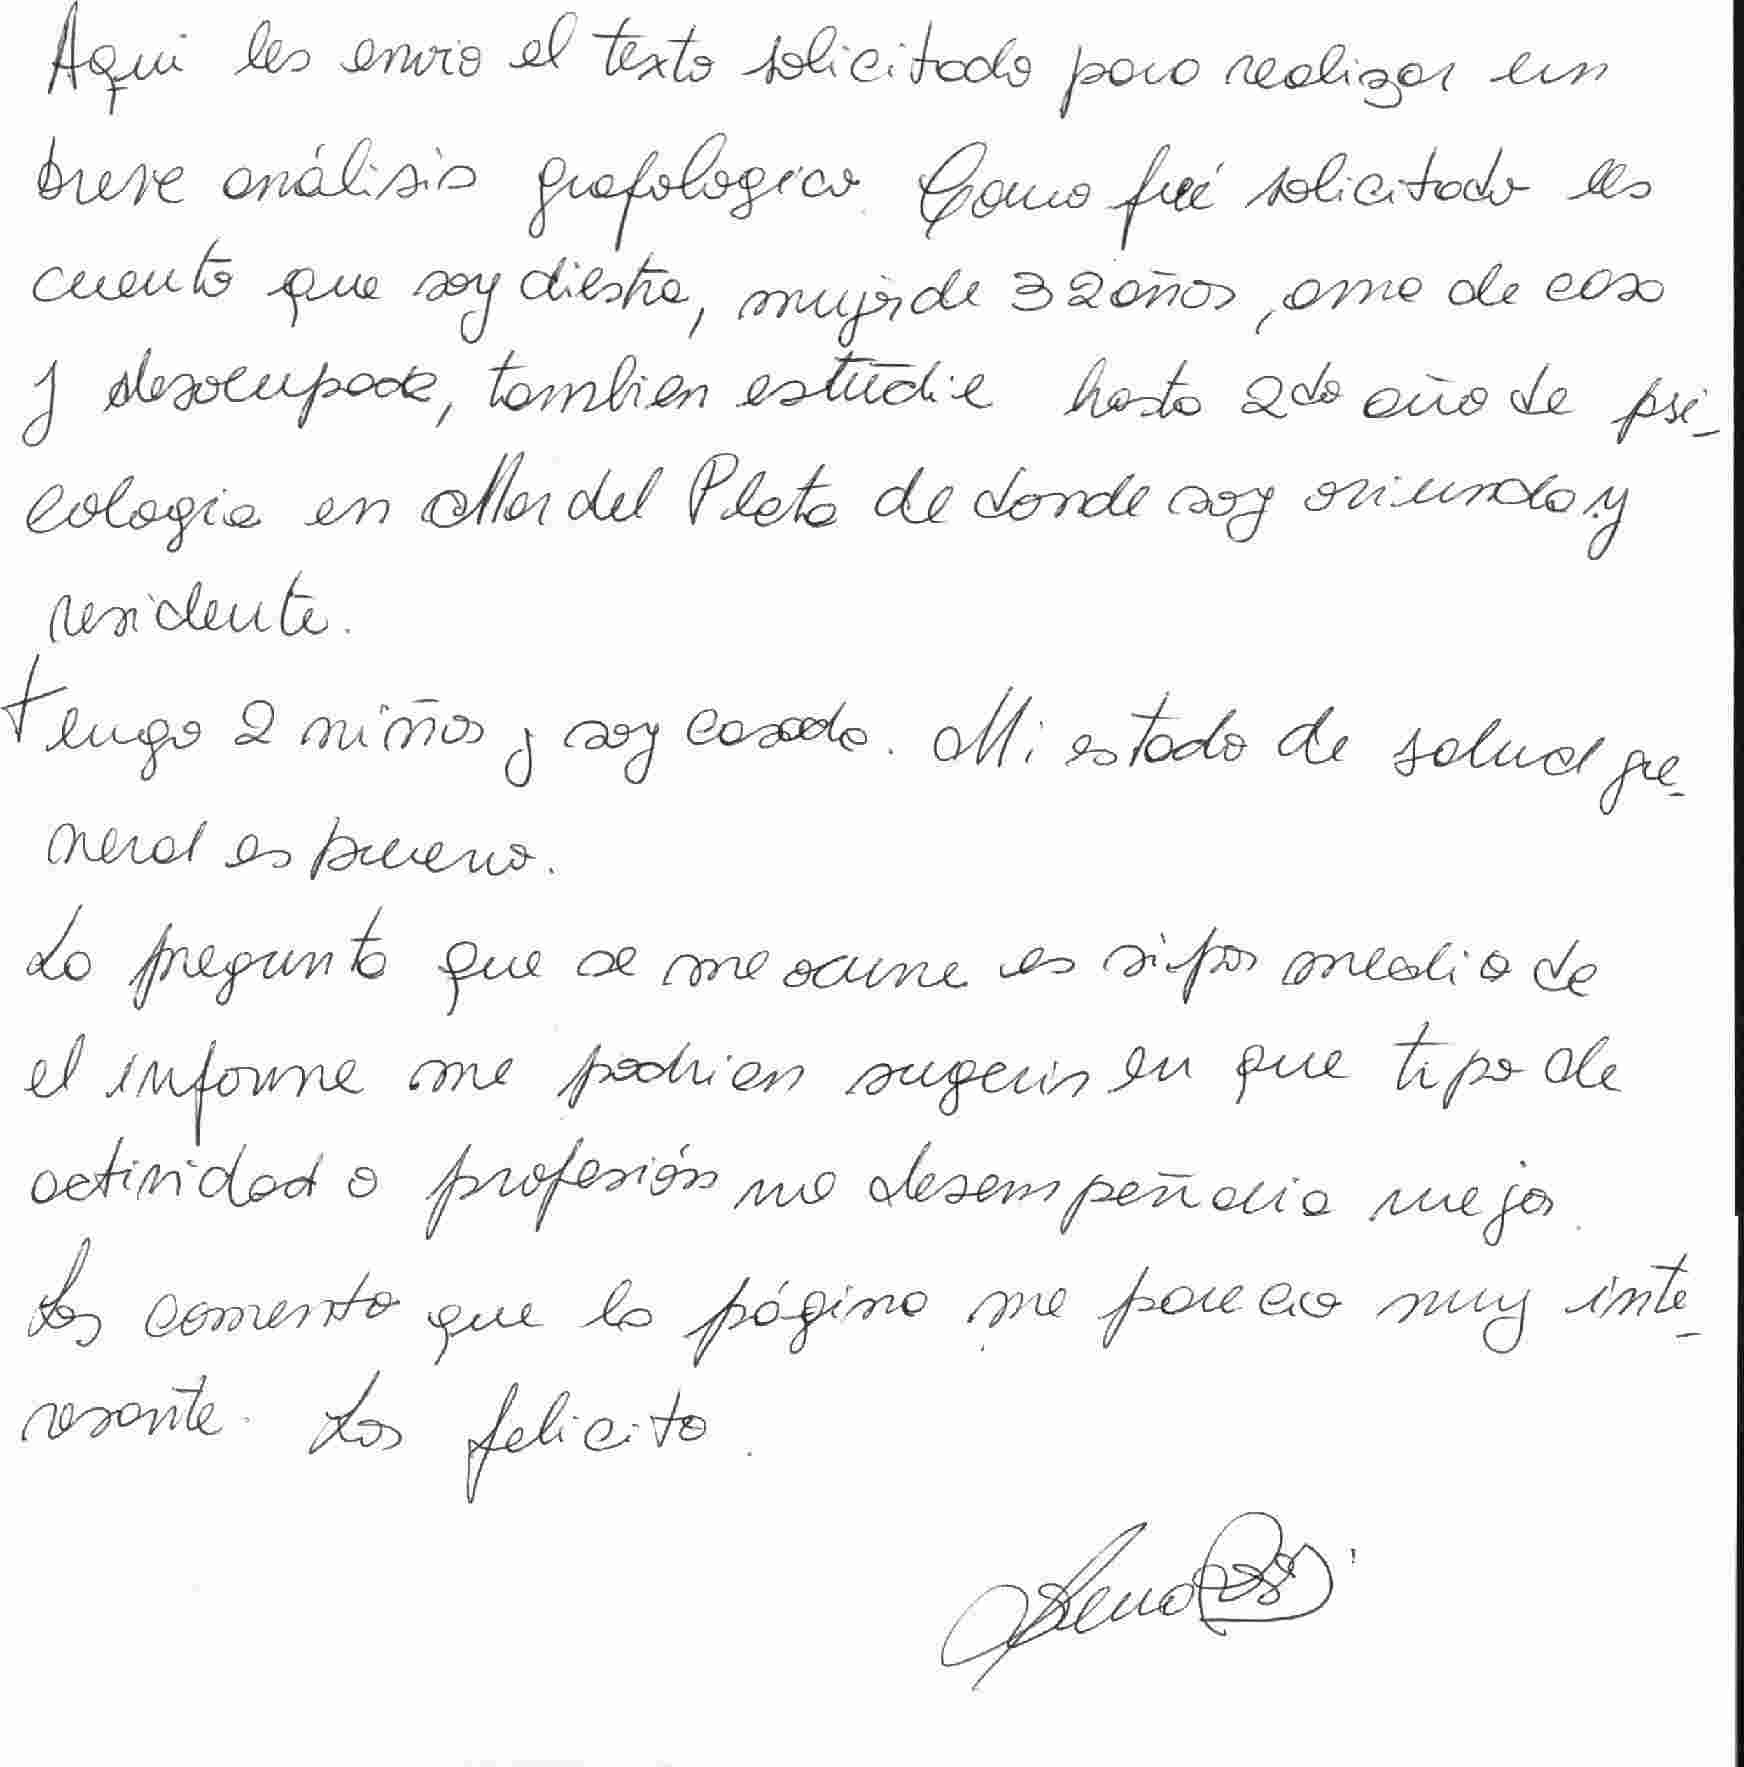 Aqui les envio el texto solicitado para realizar un
breve análisis grafologico. Como fué solicitado les
cuento que soy diestra, mujer de 32 años, ama de casa
y desocupada, tambien estudie hasta 2do año de psi-
cologia en Mar del Plata de donde soy oriunda y
residente.
Tengo 2 niños y soy casada. Mi estado de salud ge-
neral es bueno.
La pregunta que se me ocurre es si por medio de
el informe me podrian sugerir en que tipo de
actividad o profesión me desempeñaria mejor.
Les comento que la página me parecio muy inte-
resante. Los felicito.